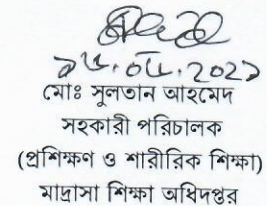 মোঃ সুলতান আহমেদ
সহকারী পরিচালক
(প্রশিক্ষণ ও শারীরিক শিক্ষা)
মাদ্রাসা শিক্ষা অধিদপ্তর